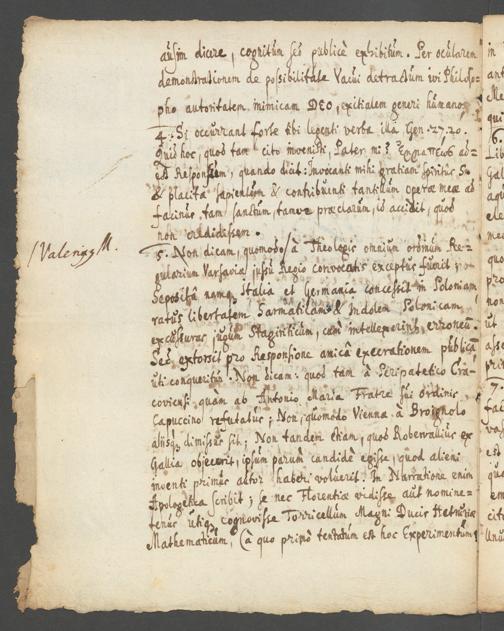 ausim dicere, cognitum sed publicè exhibitum. Per ocularem
demonstrationem de possibilitate Vacui detractum iri Philoso-
pho autoritatem inimicam DEO, exitialem generi humano.
4. Si occurrant forte tibi legenti verba illa Gen. 27. 20.
Quid hoc, quod tam cito invenisti, Pater mi?
est Responsum, quando dicit: Invocanti mihi gratiam spiritus S.
& placita sapientum & contribuenti tantillum operæ meæ ad
facinus tam sanctum, tamq præclarum, id accidit, quod
non credidissem.
/Valeriq M.
5. Non dicam, quomodo à Theologis omnium ordinum Re-
gularium Varsavia jussu Regio convocatis exceptus fuerit,
Seposita namq Italia et Germania concessit in Poloniam
ratus libertatem Sarmaticam & indolem Polonicam
excussuras jugum Stagiriticum, cum intellexerint, erroneum.
Sed extorsit pro Responsione amicâ execrationem publicam
uti conqueritur. Non dicam: quod tam à Peripatetico Cra-
coviensi, quam ab Antonio Maria Fratre sui ordinis
Capuccino refutatus; Non, quomodo Vienna à Broignolo
aliisq dimissus sit; Non tandem etiam, quod Robervallius ex
Gallia objecerit, ipsum parum candidè egisse, quod alieni
inventi primus autor haberi voluerit. In Narratione enim
Apologetica scribit; se nec Florentiæ vidisse aut nomine-
tenus utiq cognovisse Torricellum Magni Ducis Hetruriæ
Mathematicum, (à quo primò tentatum est hoc Experimentum)